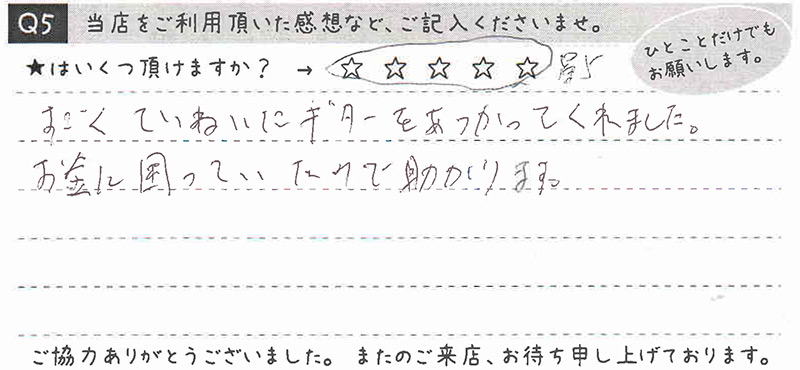 Q5 当店をご利用頂いた感想など、ご記入くださいませ。
★はいくつ頂けますか? → ☆ ☆ ☆ ☆ ☆ 星5
ひとことだけでも
お願いします。
すごく ていねいにギターをあつかってくれました。
お金に困っていたので助かります。
ご協力ありがとうございました。 またのご来店、お待ち申し上げております。